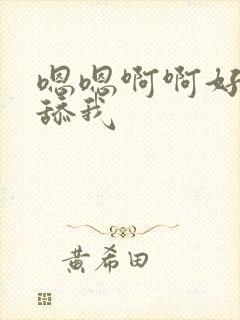 嗯嗯啊啊好
舔我
黄希田